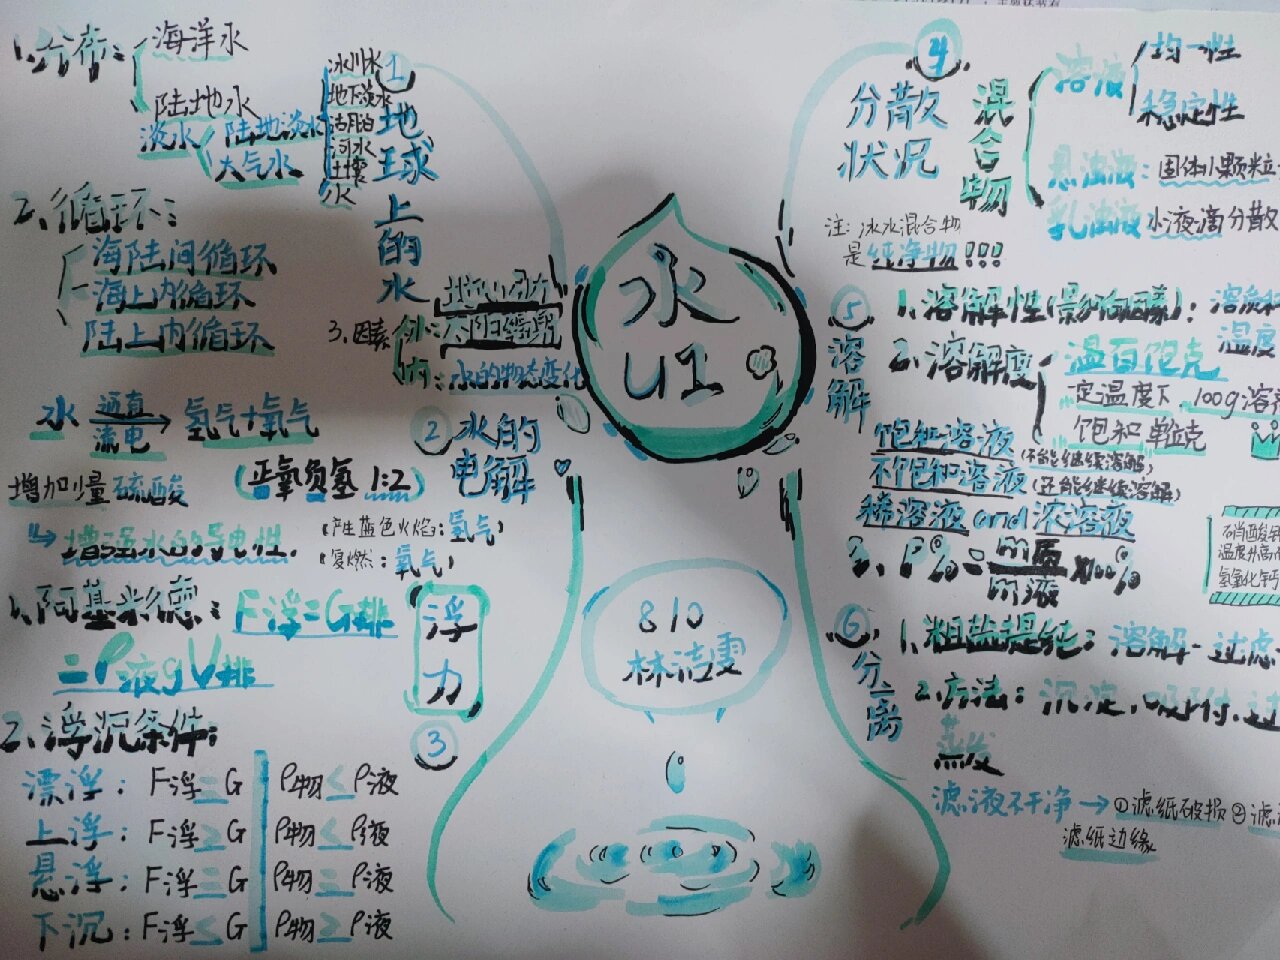 水
U1
810
林洁雯
① 地球上的水
1、分布:
海洋水
陆地水
冰川水
地下淡水
湖泊
河水
土壤水
淡水
陆地淡水
大气水
2、循环:
海陆间循环
海上内循环
陆上内循环
3、因素
外: 地心引力
太阳辐射
内: 水的物态变化
② 水的电解
水 通直流电 → 氢气+氧气
增加少量硫酸
(正氧负氢 1:2)
↳ 增强水的导电性.
(产生蓝色火焰: 氢气)
(复燃: 氧气)
③ 浮力
1、阿基米德: F浮=G排
=ρ液gV排
2、浮沉条件:
漂浮: F浮=G ρ物<ρ液
上浮: F浮>G ρ物<ρ液
悬浮: F浮=G ρ物=ρ液
下沉: F浮<G ρ物>ρ液
④ 分散状况
混合物
溶液
均一性
稳定性
悬浊液: 固体小颗粒
乳浊液 水液滴分散
注: 冰水混合物
是纯净物!!!
⑤ 溶解
1、溶解性(影响因素): 溶质和
温度
2、溶解度
温百饱克
一定温度下 100g溶
饱和 单位克
饱和溶液(不能继续溶解)
不饱和溶液(还能继续溶解)
稀溶液and浓溶液
3、P%= m质/m液 ×100%
硝酸
温度升高
氢氧化钙
⑥ 分离
1、粗盐提纯: 溶解-过滤-
2、方法: 沉淀、吸附、过
蒸发
滤液不干净 → ①滤纸破损 ②滤
滤纸边缘